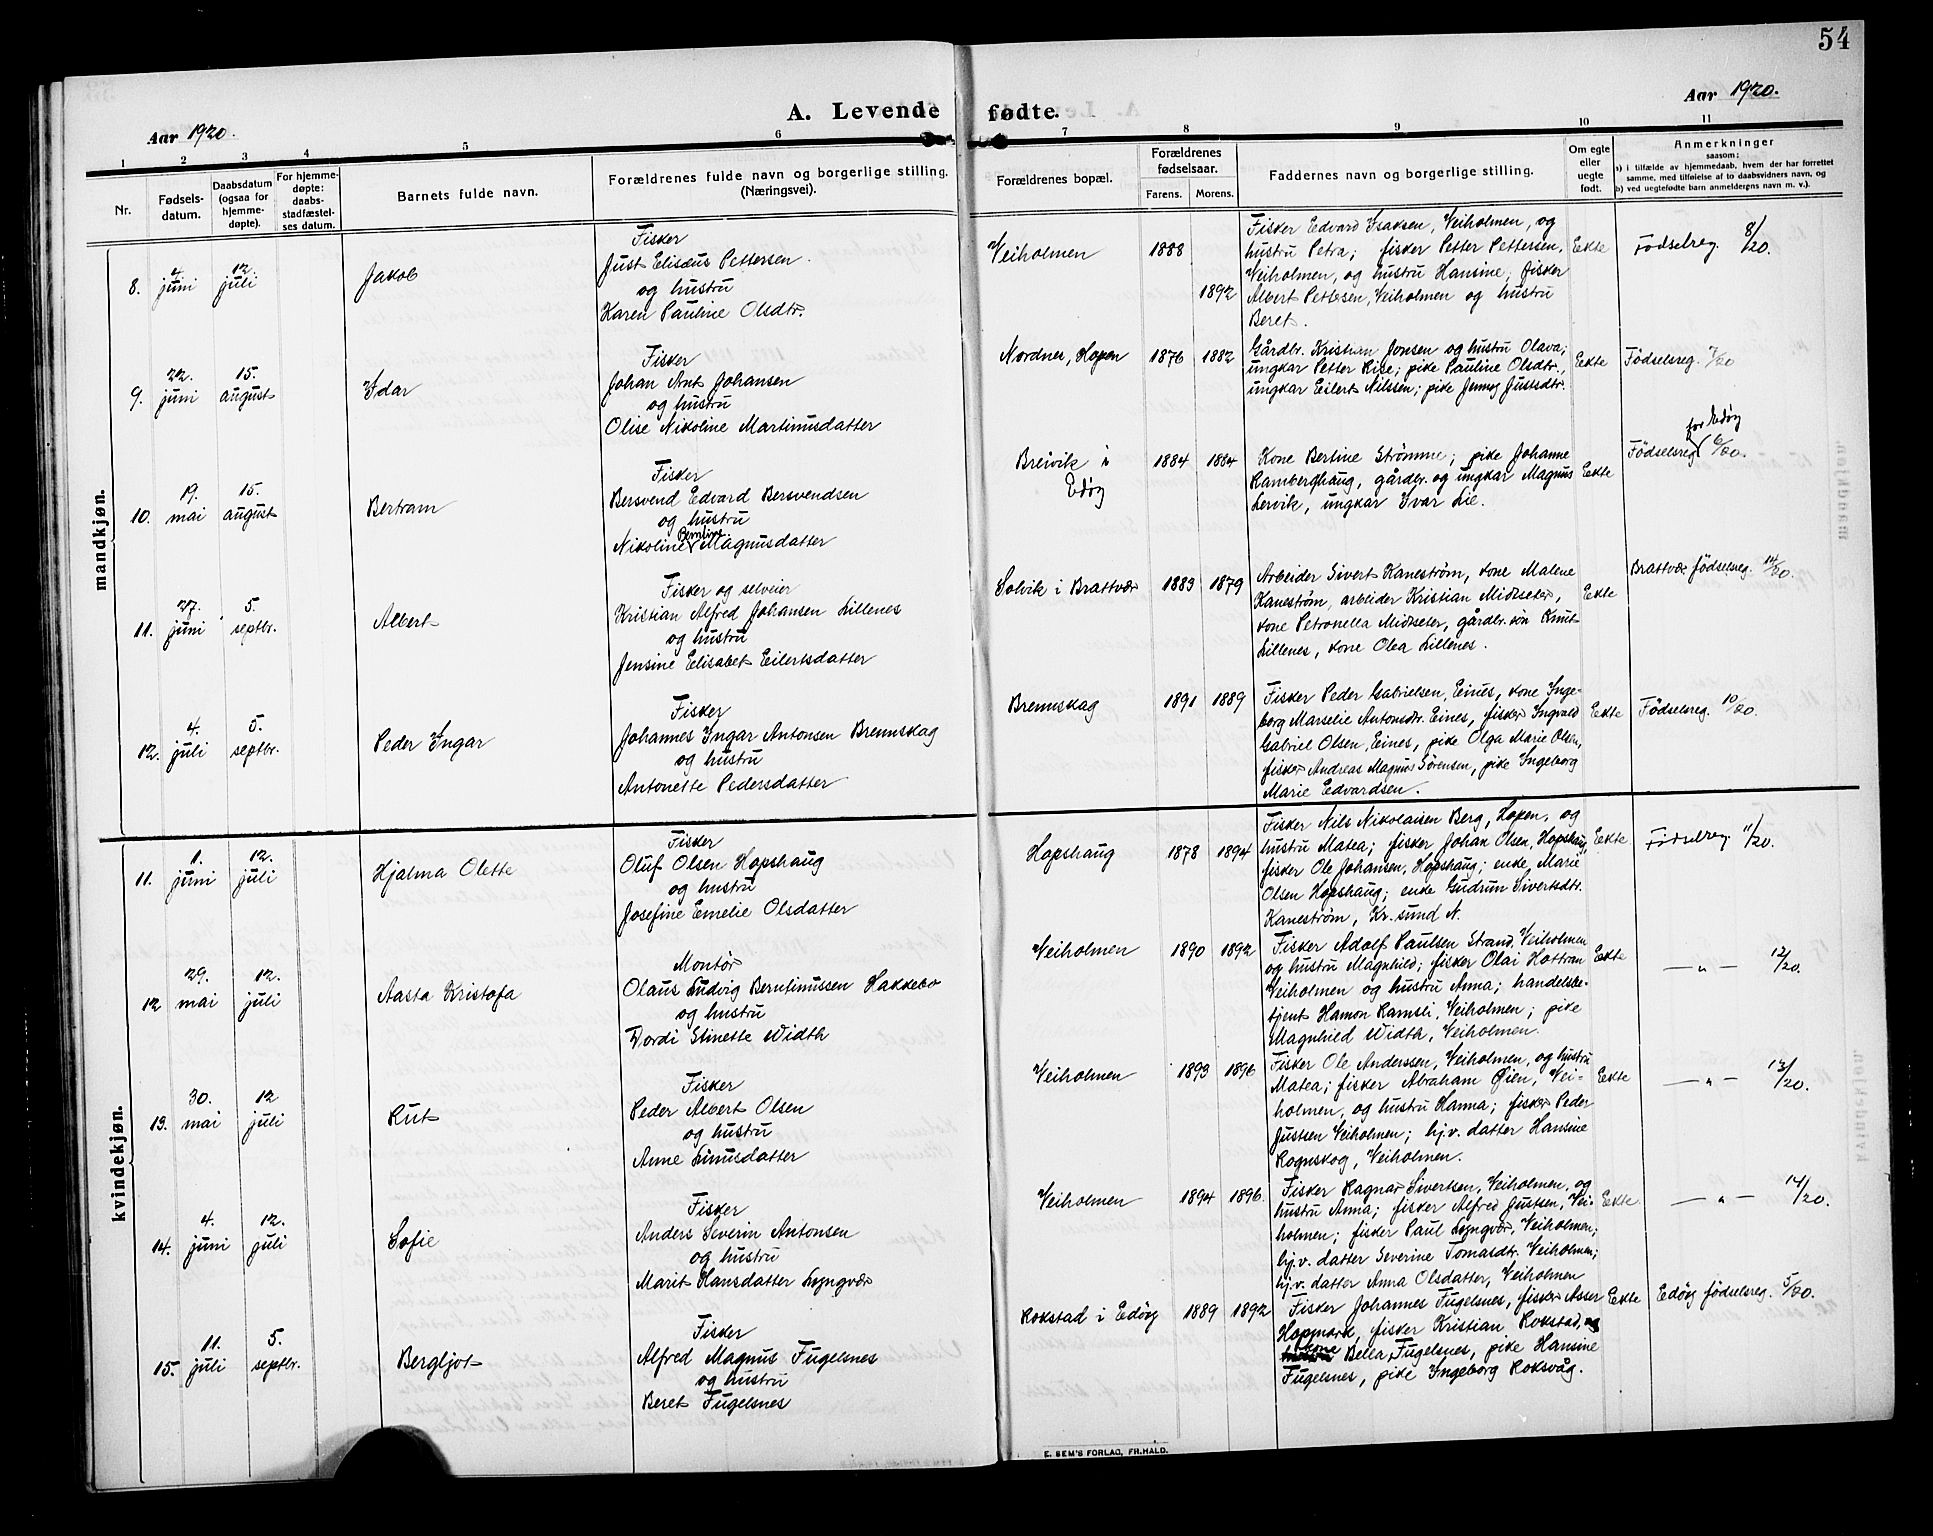 54
Aar 1920.
A. Levende fødte.
Aar 1920.
1 2 3 4 5 6 7 8 9 10 11
Nr.
Fødsels-
datum.
Daabsdatum
(ogsaa for
hjemme-
døpte).
For hjemme-
døpte:
daabs-
stadfæstel-
ses datum.
Barnets fulde navn.
Forældrenes fulde navn og borgerlige stilling.
(Næringsvei).
Forældrenes bopæl.
Forældrenes
fødselsaar.
Farens. Morens.
Faddernes navn og borgerlige stilling.
Om egte
eller
uegte
født.
Anmerkninger
saasom:
a) i tilfælde av hjemmedaab, hvem der har forrettet
samme, med tilføielse af to daabsvidners navn, og
b) ved uegtefødte barn anmelderens navn m. v.).
mandkjøn.
8.
4.
juni
12.
juli
Jakob
Fisker
Just Elisæus Pettersen
og hustru
Karen Pauline Olsdtr.
Veiholmen
1888
1892
Fisker Edvard Isaksen, Veiholmen, og
hustru Petra; fisker Petter Pettersen,
Veiholmen, og hustru Hansine; fisker
Albert Pettersen, Veiholmen og hustru
Beret.
Ekte
Fødselreg. 8/20.
9.
22.
juni
15.
august
Idar
Fisker
Johan Arnt Johansen
og hustru
Olise Nikoline Martinusdatter
Nordnes, Hopen
1876 1882
Gårdbr. Kristian Jonsen og hustru Olava;
ungkar Petter Rise; pike Pauline Olsdtr.,
ungkar Eilert Nilssen; pike Jenny Justsdtr.
Ekte
Fødselsreg. 7/20
10.
19.
mai
15.
august
Bertram
Fisker
Bersvend Edvard Bersvendsen
og hustru
Nikoline Berntine Magnusdatter
Breivik i
Edøy
1884 1884
Kone Bertine Strømme; pike Johanne
Ramberghaug, gårdbr. og ungkar Magnus
Lervik, ungkar Ivar Lie.
Ekte
for Edøy
Fødselsreg 6/20.
11.
27.
juni
5.
septbr.
Albert
Fisker og selveier
Kristian Alfred Johansen Lillenes
og hustru
Jensine Elisabet Eilertsdatter
Solvik i Brattvær
1883 1879
Arbeider Sivert Kanestrøm, kone Malene
Kanestrøm, arbeider Kristian Midtseter,
kone Petronella Midtseter, gårdbr. søn Knut
Lillenes, kone Olea Lillenes.
Ekte
Brattvær fødselsreg. 14/20.
12.
4.
juli
5.
septbr.
Peder Ingar
Fisker
Johannes Ingar Antonsen Bremskag
og hustru
Antonette Pedersdatter
Bremskag
1891 1889
Fisker Peder Gabrielsen, Eines, kone Inge-
borg Marselie Antonsdtr. Eines, fisker Ingvald
Gabriel Olsen, Eines, pike Olga Marie Olsen,
fisker Andreas Magnus Sørensen, pike Ingeborg
Marie Edvardsen.
Ekte
Fødselsreg. 10/20.
kvindekjøn.
11.
1.
juni
12.
juli
Hjalma Olette
Fisker
Oluf Olsen Hopshaug
og hustru
Josefine Emelie Olsdatter
Hopshaug
1878 1894
Fisker Nils Nikolaisen Berg, Hopen, og
hustru Matea; fisker Johan Olsen, Hopshaug,
fisker Ole Johansen, Hopshaug; enke Marie
Olsen Hopshaug; enke Gudrun Sivertsdtr.
Kanestrøm, Kr.sund N.
Ekte
Fødselreg 11/20.
12
29.
mai
12.
juli
Aasta Kristofa
Montør
Olaus Ludvig Berntinussen Hakkebo
og hustru
Dordi Stinette Width
Veiholmen
1890 1892
Fisker Adolf Paulsen Strand, Veiholmen
og hustru Magnhild; fisker Olai Hottran
Veiholmen og hustru Anna; handelsbe-
tjent Hamon Ramsli, Veiholmen; pike
Magnhild Width, Veiholmen.
Ekte
— „ — 12/20.
13.
30.
mai
12
juli
Rut
Fisker
Peder Albert Olsen
og hustru
Anne Linusdatter
Veiholmen
1893 1896
Fisker Ole Anderssen, Veiholmen, og hustru
Matea; fisker Abraham Øien, Vei-
holmen, og hustru Hanna; fisker Peder
Justsen Veiholmen; hj.v. datter Hansine
Rognskog, Veiholmen.
Ekte
— „ — 13/20.
14.
4.
juni
12.
juli
Sofie
Fisker
Anders Severin Antonsen
og hustru
Marit Hansdatter Lyngvær
Veiholmen
1894 1896.
Fisker Ragnar Sivertsen, Veiholmen, og
hustru Anna; fisker Alfred Justsen, Vei-
holmen; fisker Paul Lyngvær, Veiholmen;
hj.v. datter Severine Tomasdtr. Veiholmen;
hj.v. datter Anna Olsdatter, Veiholmen
Ekte.
— „ — 14/20.
15.
11.
juli
5.
septbr.
Bergljot
Fisker
Alfred Magnus Fugelsnes
og hustru
Beret Fugelsnes
Rokstad i Edøy
1889 1892
Fisker Johannes Fugelsnes, fisker Asser
Hopmark, fisker Kristian Rokstad, og
kone Bella Fugelsnes, pike Hansine
Fugelsnes, pike Ingeborg Roksvåg.
Ekte
Edøy fødselsreg. 5/20.
E. SEM'S FORLAG, FR.HALD.